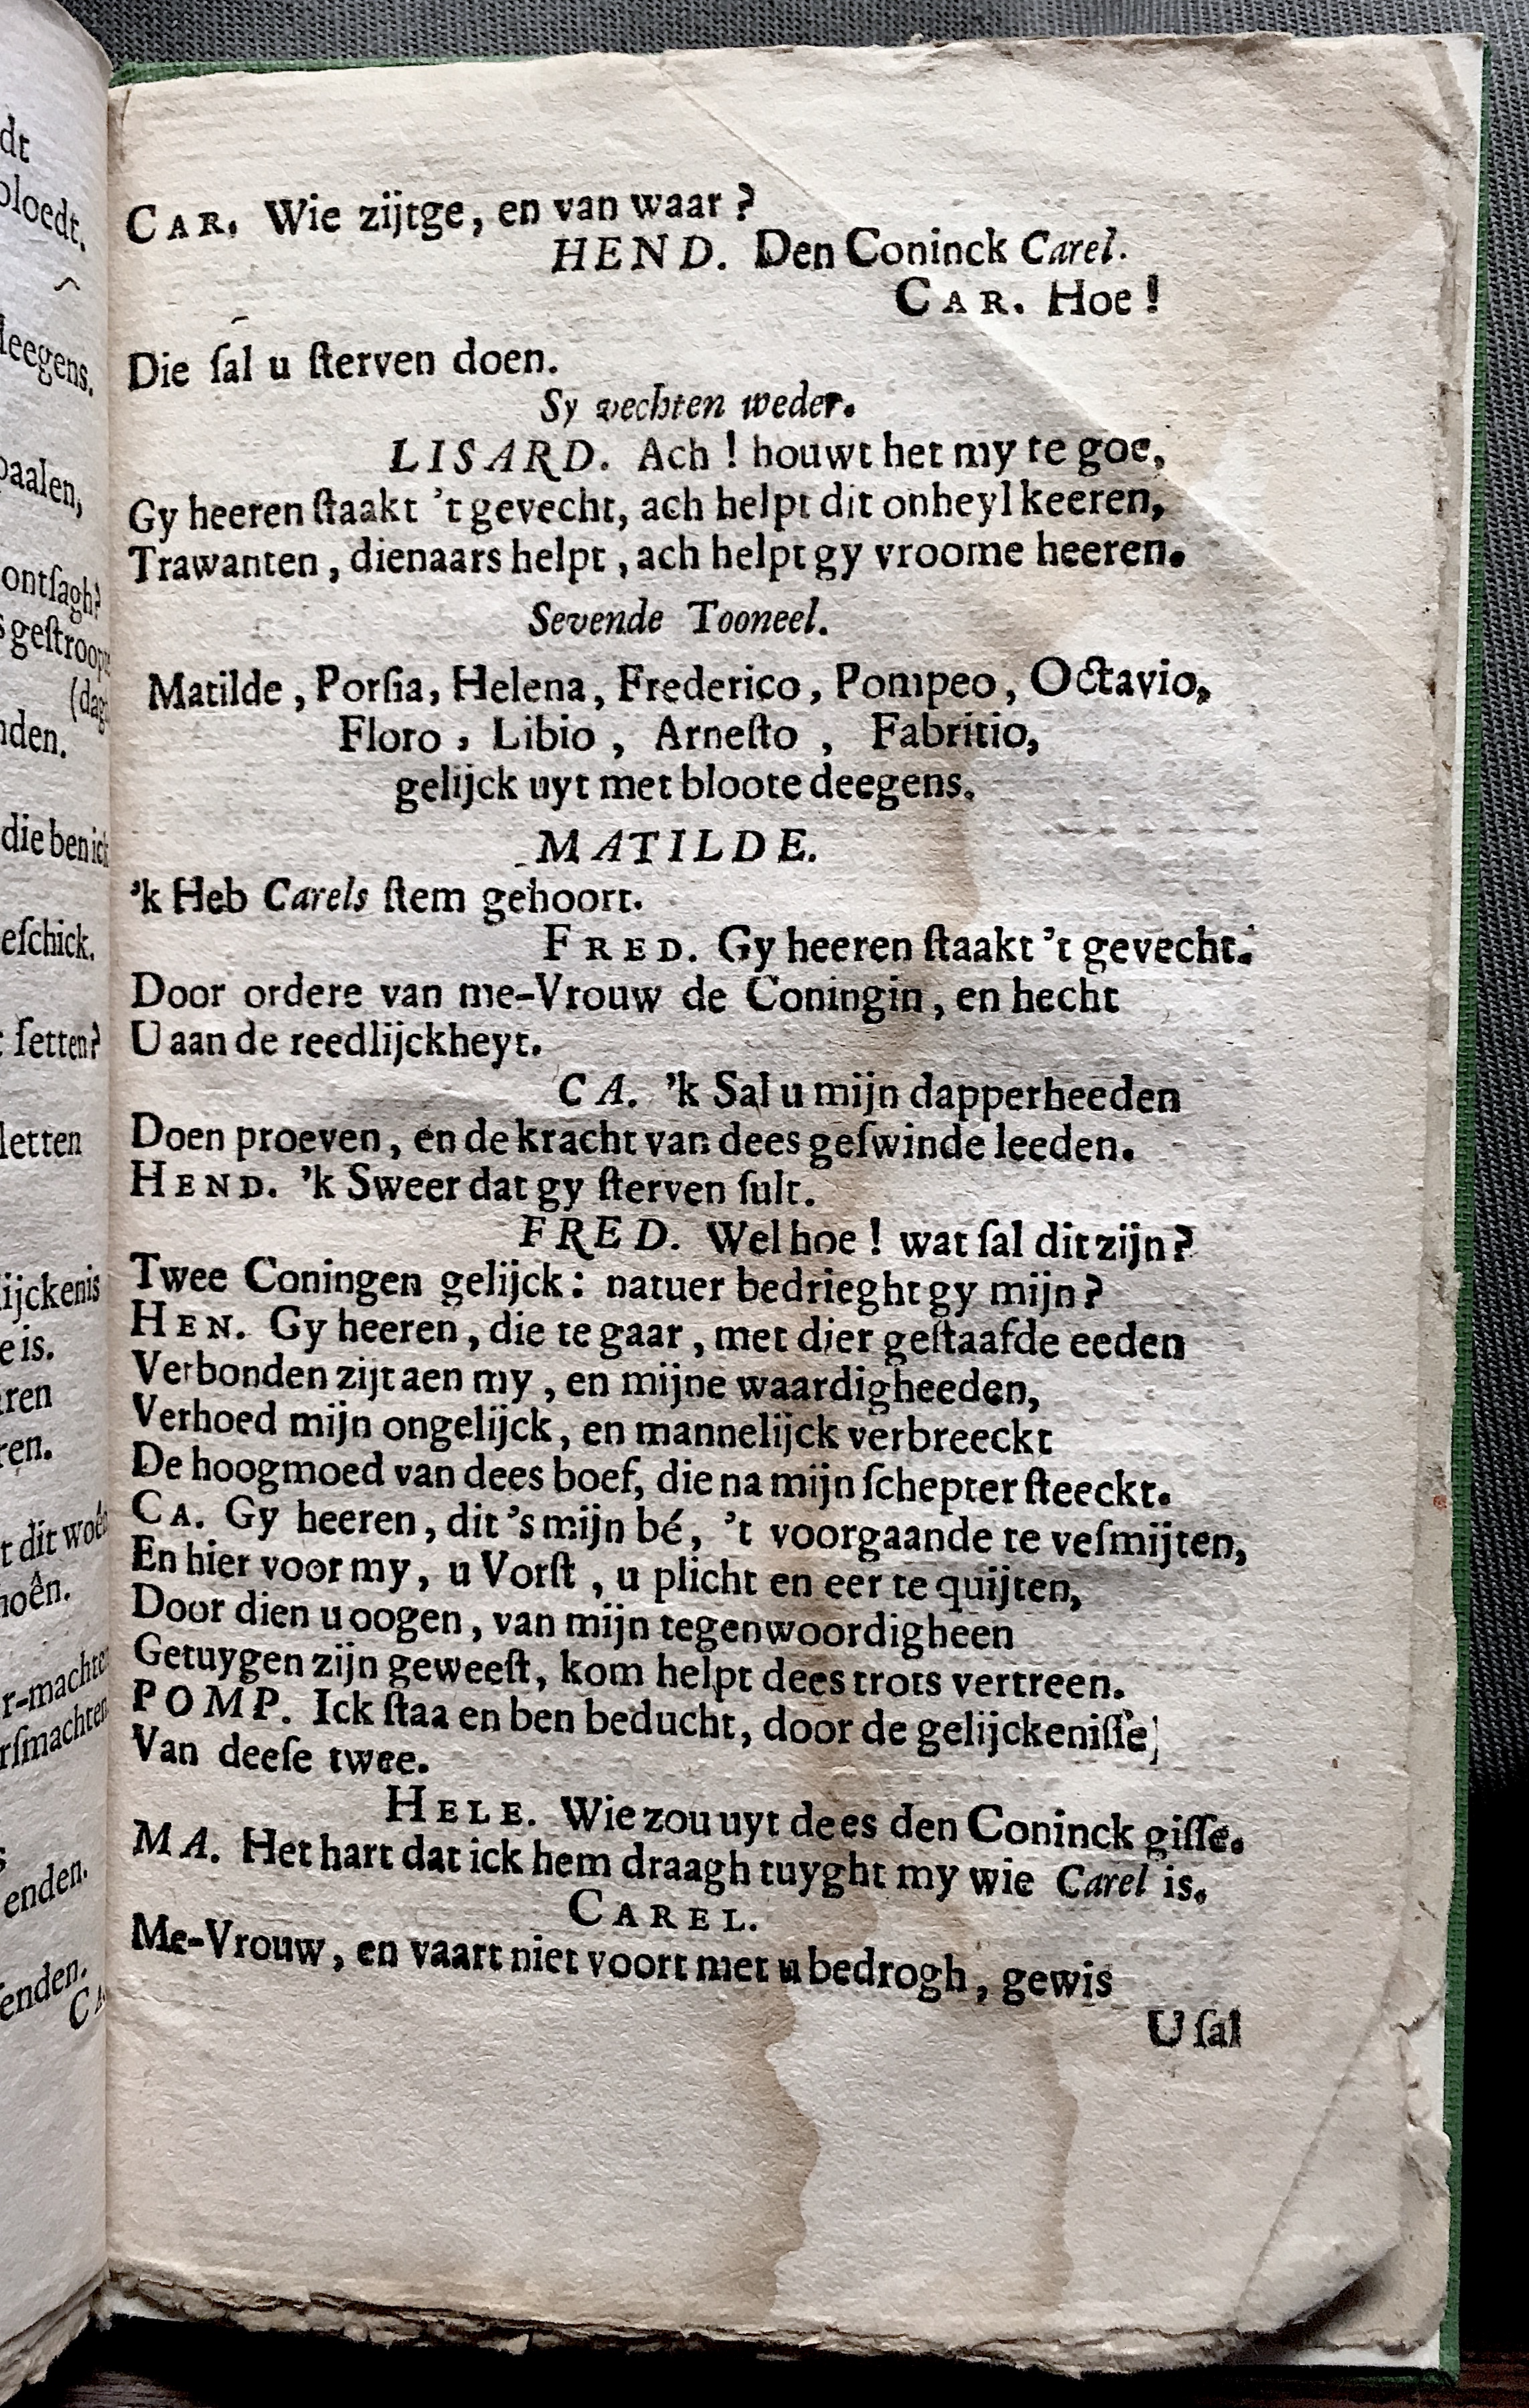 dt
bloedt.
deegens.
paalen,
ontſagh?
geſtroop
(dag
nden.
die ben ick
eſchick.
ſetten?
letten
ijckenis
e is.
ren
ren.
t dit woên
noên.
r-machten
rſmachten
enden.
enden.
CA
CAR. Wie zijtge, en van waar?
HEND. Den Coninck Carel.
CAR. Hoe!
Die ſal u ſterven doen.
Sy vechten weder.
LISARD. Ach! houwt het my te goe,
Gy heeren ſtaakt 't gevecht, ach helpt dit onheyl keeren,
Trawanten, dienaars helpt, ach helpt gy vroome heeren.
Sevende Tooneel.
Matilde, Porſia, Helena, Frederico, Pompeo, Octavio,
Floro, Libio, Arneſto, Fabritio,
gelijck uyt met bloote deegens.
MATILDE.
'k Heb Carels ſtem gehoort.
FRED. Gy heeren ſtaakt 't gevecht.
Door ordere van me-Vrouw de Coningin, en hecht
U aan de reedlijckheyt.
CA. 'k Sal u mijn dapperheeden
Doen proeven, en de kracht van dees geſwinde leeden.
HEND. 'k Sweer dat gy ſterven ſult.
FRED. Wel hoe! wat ſal dit zijn?
Twee Coningen gelijck: natuer bedrieght gy mijn?
HEN. Gy heeren, die te gaar, met dier geſtaafde eeden
Verbonden zijt aen my, en mijne waardigheeden,
Verhoed mijn ongelijck, en mannelijck verbreeckt
De hoogmoed van dees boef, die na mijn ſchepter ſteeckt.
CA. Gy heeren, dit 's mijn bé, 't voorgaande te veſmijten,
En hier voor my, u Vorſt, u plicht en eer te quijten,
Door dien u oogen, van mijn tegenwoordigheen
Getuygen zijn geweeſt, kom helpt dees trots vertreen.
POMP. Ick ſtaa en ben beducht, door de gelijckeniſſe
Van deeſe twee.
HELE. Wie zou uyt dees den Coninck giſſe.
MA. Het hart dat ick hem draagh tuyght my wie Carel is.
CAREL.
Me-Vrouw, en vaart niet voort met u bedrogh, gewis
U ſal